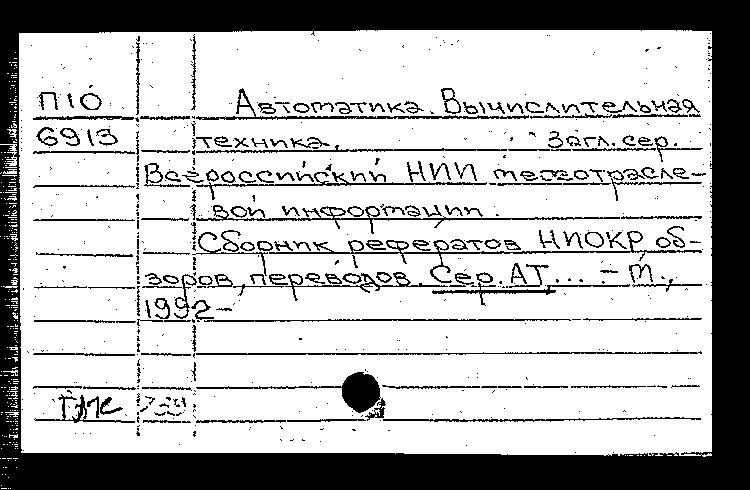 П10 Автоматика. Вычислительная
6913 техника. Загл. сер.
Всероссийский НИИ межотрасле-
вой информации.
Сборник рефератов НИОКР, об-
зоров, переводов. Сер. АТ, ... - М.,
1992-